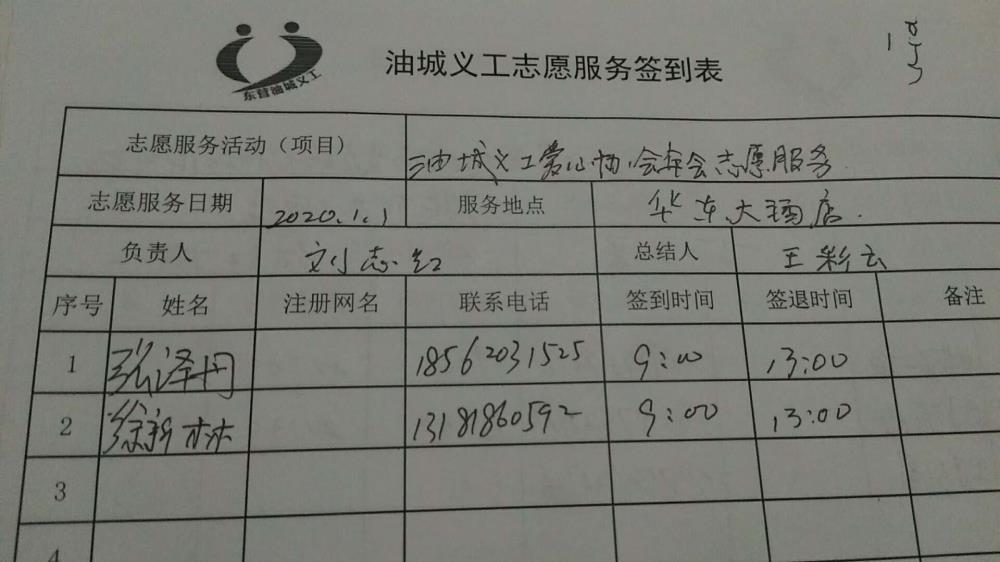 东营油城义工
油城义工志愿服务签到表
志愿服务活动（项目） 油城义工爱心协会年会志愿服务
志愿服务日期 2020.1.1 服务地点 华东大酒店.
负责人 刘志红 总结人 王彩云
序号 姓名 注册网名 联系电话 签到时间 签退时间 备注
1 张泽丹 18562031525 9:00 13:00
2 徐新林 13181860592 9:00 13:00
3
4